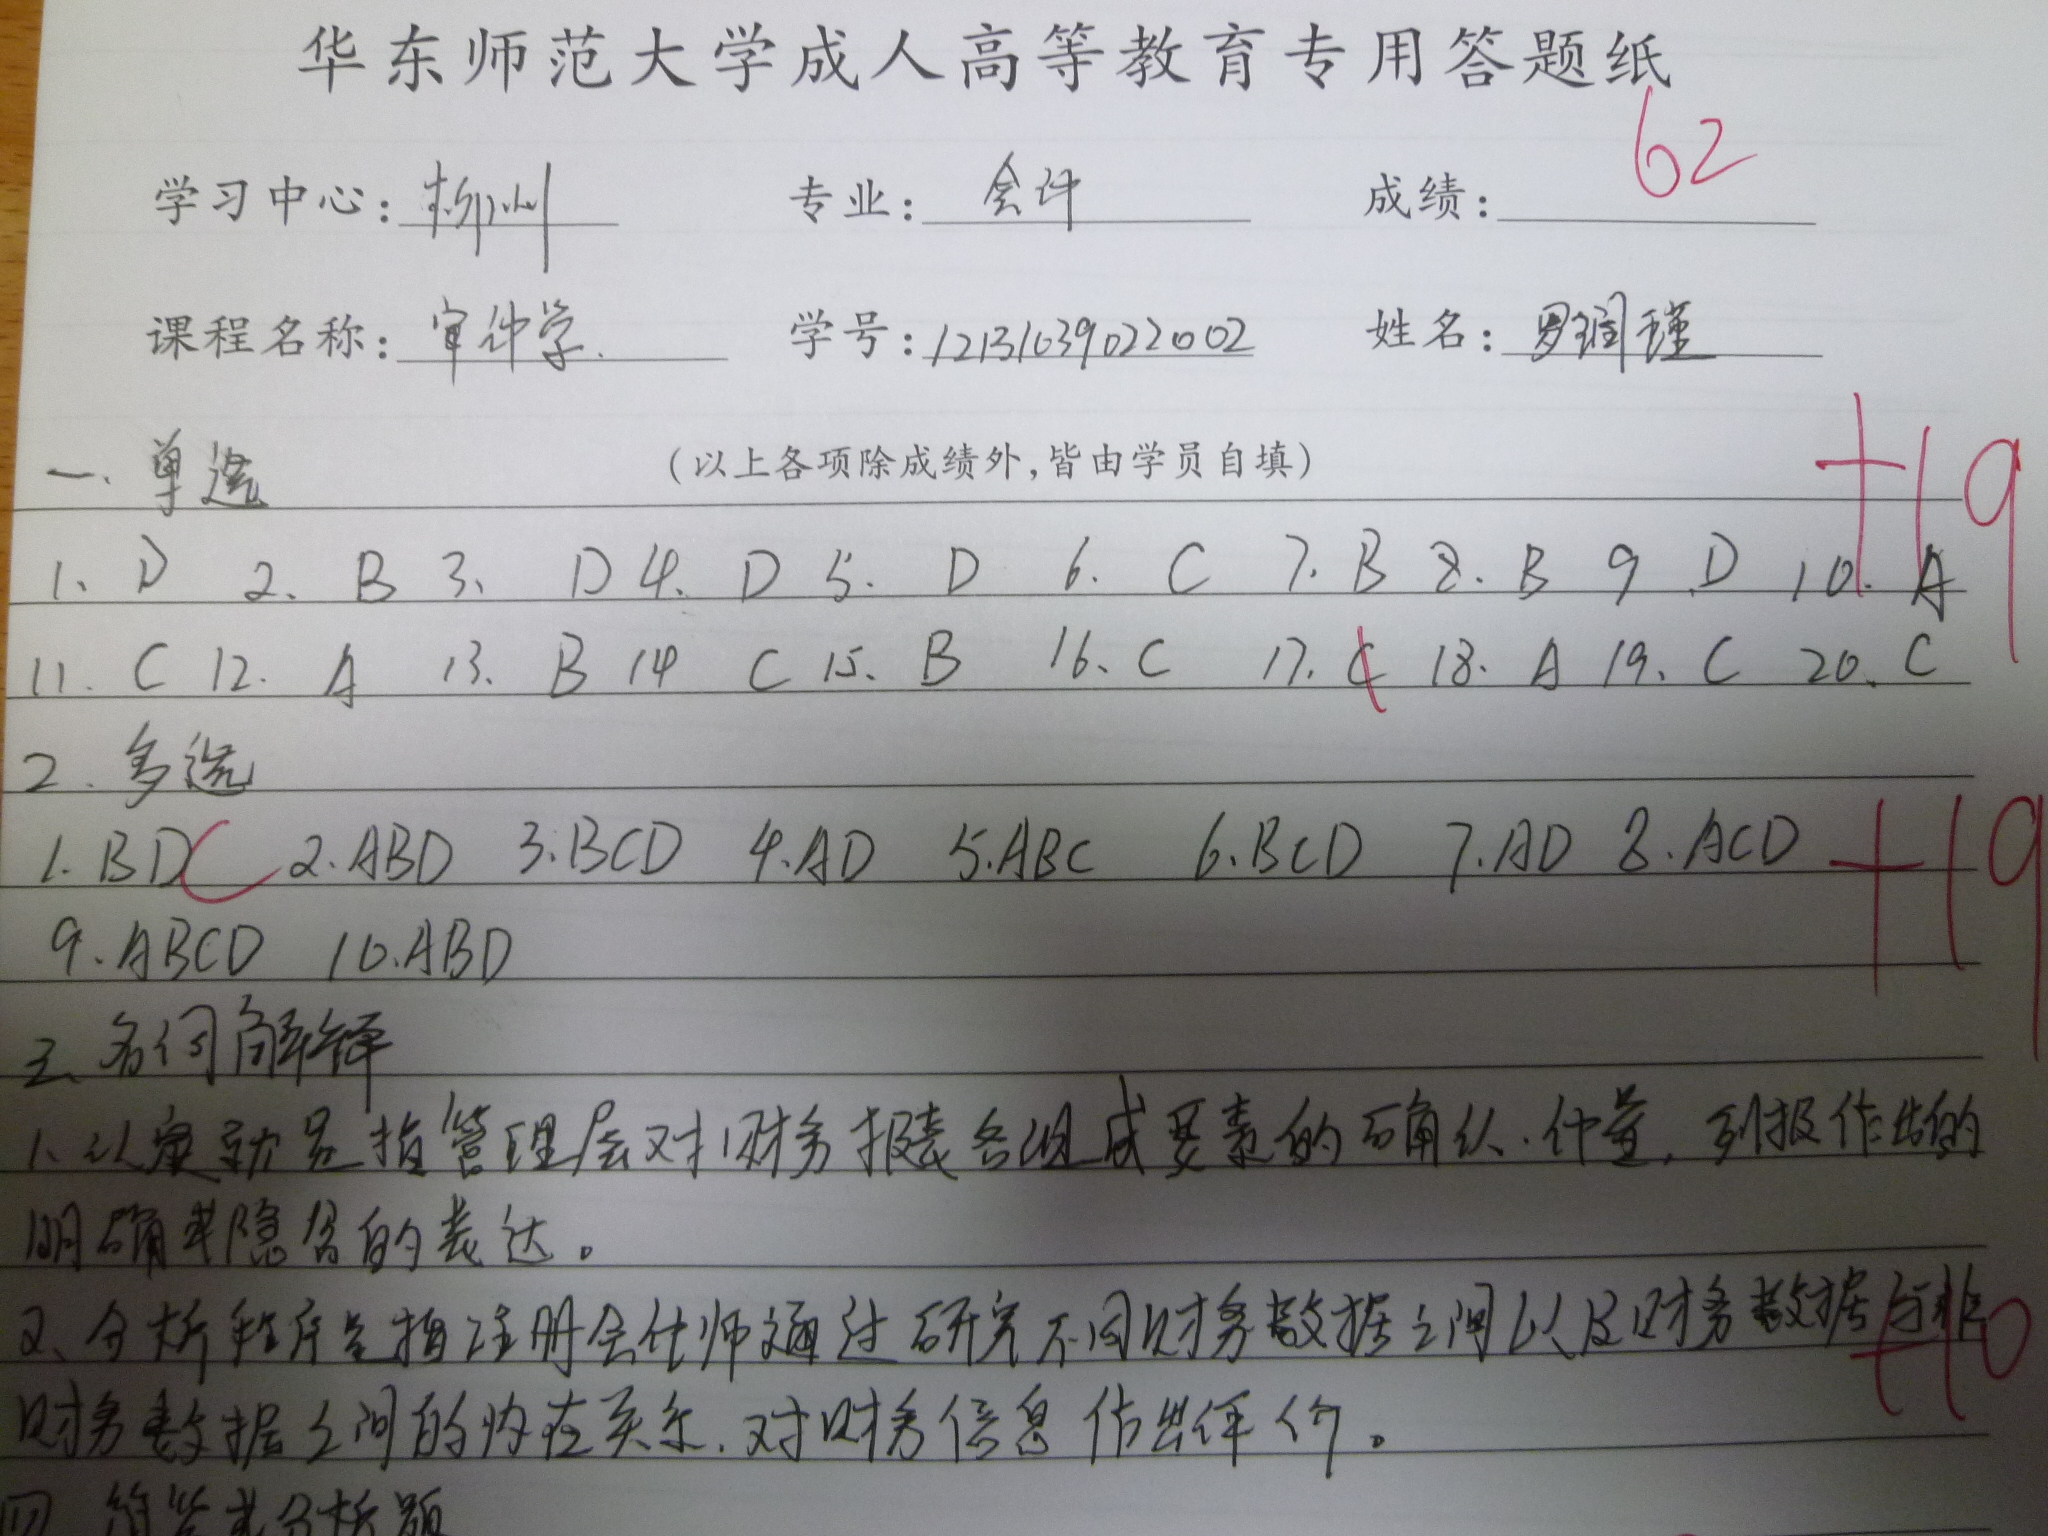 华东师范大学成人高等教育专用答题纸
62
学习中心：柳州 专业：会计 成绩：
课程名称：审计学. 学号：12131039022002 姓名：罗润瑾
一、单选 （以上各项除成绩外，皆由学员自填） +19
1、D 2、B 3、D 4、D 5、D 6、C 7、B 8、B 9 D 10、A
11、C 12、A 13、B 14 C 15、B 16、C 17、C 18、A 19、C 20、C
2、多选
1.BDC 2.ABD 3.BCD 4.AD 5.ABC 6.BCD 7.AD 8.ACD +19
9.ABCD 10.ABD
三、名词解释
1、认定就是指管理层对财务报表各组成要素的确认、计量，列报作出的
明确或隐含的表达。
2、分析程序是指注册会计师通过研究不同财务数据之间以及财务数据与非 +10
财务数据之间的内在关系，对财务信息作出评价。
四、简答或分析题